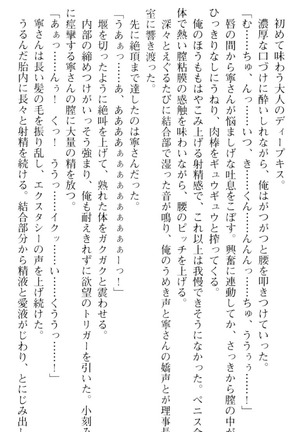 初めて味わう大人のディープキス。
「む……ちゅ　んっ……いつ、き……くん……んんんっ……ちゅう」
濃厚な口づけに酔いしれながら、俺はがつがつと腰を叩きつけていった。
唇の間から寧さんが悩ましげな吐息をこぼす。興奮に連動してか、さっきから膣の中が
ひっきりなしにうねり、肉棒をギュウギュウと搾ってくる。
俺のほうももはやこみ上げる射精感で、これ以上は我慢できそうになかった。ペニス全
体で熱い膣粘膜の感触を味わいながら、腰のピッチを上げる。
深々とえぐるたびに結合部で湿った音が鳴り、俺のうめき声と寧さんの嬌声とが理事長
室に響き渡った。
先に絶頂まで達したのは寧さんだった。
「うあぁっ……あ、あああああぁぁぁぁぁーっ！」
堰を切ったように絶叫を上げて、熟れた体をガクガクと震わせる。
内部の締めつけがいっそう強まり、俺も耐えきれずに欲望のトリガーを引いた。小刻み
に痙攣する寧さんの膣に大量の精を放つ。
「あぁっ……んっ！　くっ！　ううっ……イクッ……い……くううっ……！」
寧さんは長い髪の毛を振り乱し、エクスタシーの声を上げ続けた。
うるんだ胎内に長々と射精を続ける。結合部分から精液と愛液がじわり、とにじみ出し